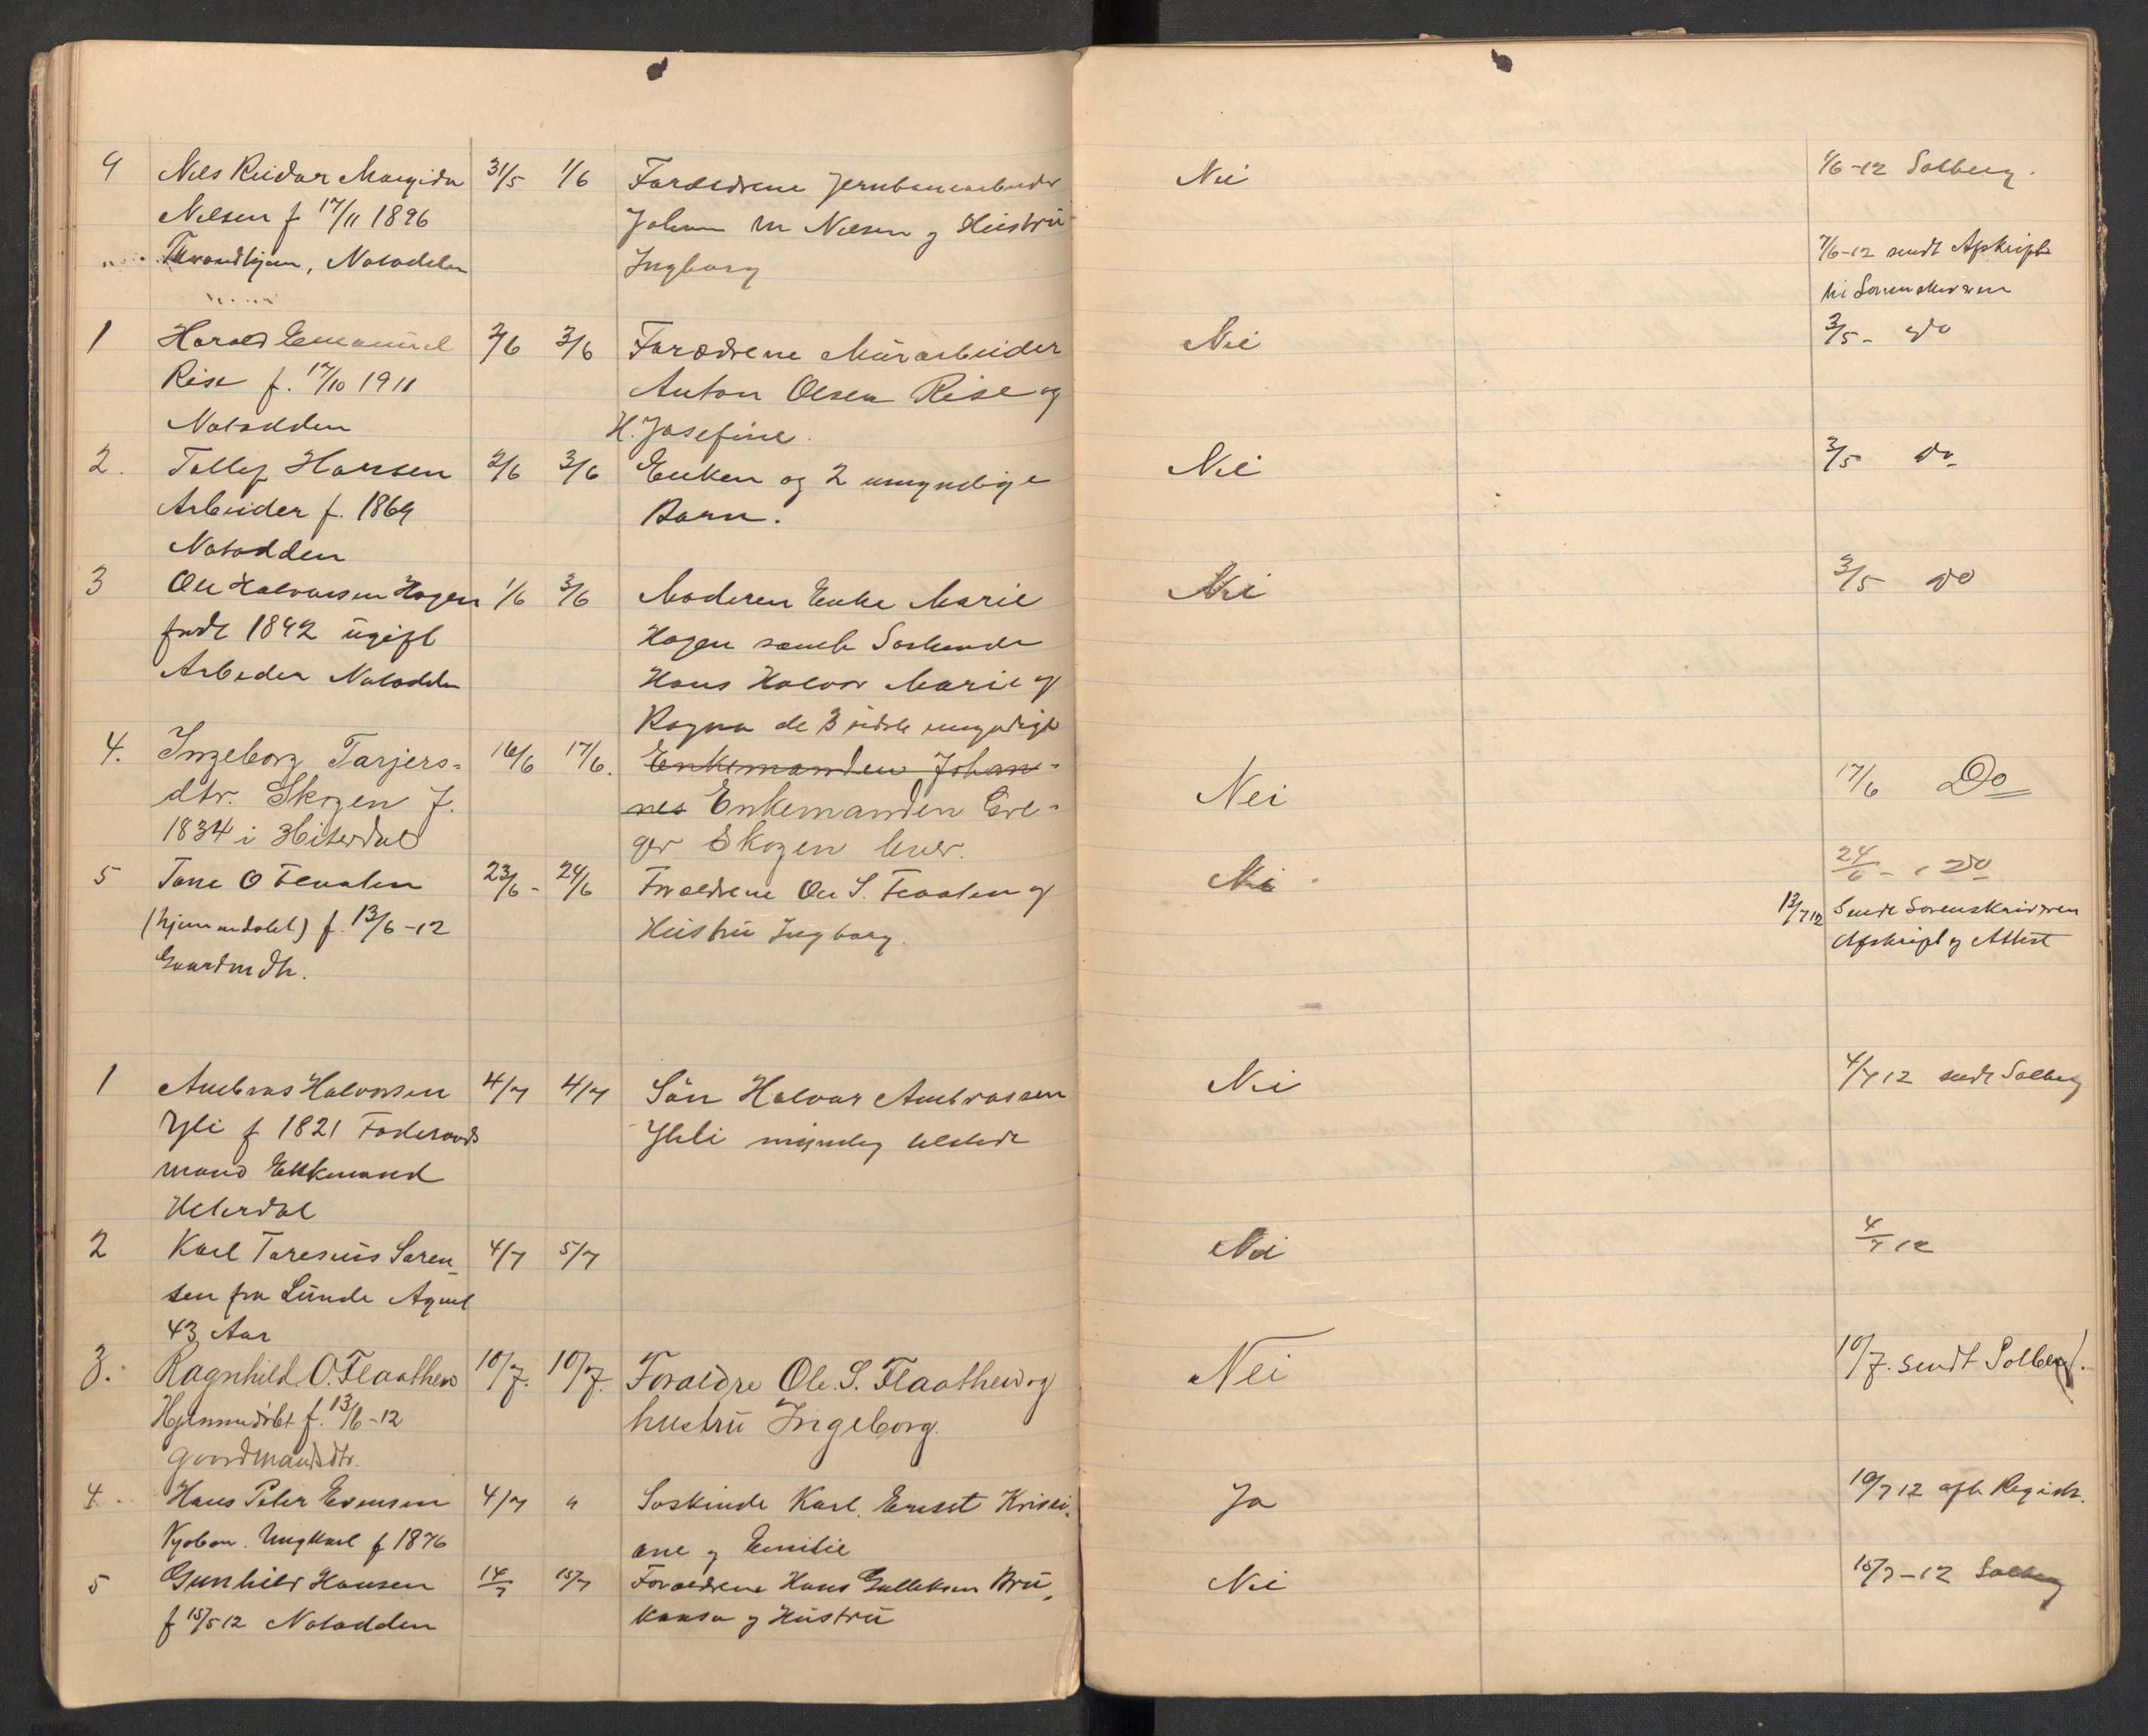 9 Nils Reidar Margido 31/5 1/6 Forældrene Jernbanearbeider Nei 1/6-12 Solberg.
Nilsen f 17/11 1896 Johan M Nilsen og Hustru
Throndhjem, Notodden Ingborg 7/6-12 sendt Afskrift
til Sorenskriveren
1 Harald Emanuel 2/6 3/6 Forældrene Murarbeider Nei 3/5 - do
Rise f. 17/10 1911 Anton Olsen Rise og
Notodden H. Josefine.
2. Tollef Hansen 2/6 3/6 Enken og 2 umyndige Nei 3/5 do
Arbeider f. 1869 Barn.
Notodden
3 Ole Halvorsen Hagen 1/6 3/6 Moderen Enke Marie Nei 3/5 do
født 1892 ugift Hagen samt Søskende
Arbeder Notodden Hans Halvor Marie og
Ragna de 3 sidste umyndige
4. Ingeborg Tarjers= 16/6 17/6. Enkemanden Johan= Nei 17/6 Do
dtr. Skogen f. nes Enkemanden Gre=
1834 i Hiterdal ger Skogen lever.
5 Tone O Flaaten 23/6 - 24/6 Forældrene Ole S. Flaaten og Nei 24/6 - do
(hjemmedøbt) f. 13/6-12 Hustru Ingborg. 13/7 12 Sendt Sorenskriveren
Gaardmdtr. Afskrift og Attest
1 Ambros Halvorsen 4/7 4/7 Søn Halvor Ambrossen Nei 4/7 12 sendt Solberg
Yli f 1821 Føderaads Yli myndig tilstede
mand Enkemand
Hiterdal
2 Karl Taresius Søren_ 4/7 5/7 Nei 4/7 12
sen fra Lunde
43 Aar
3. Ragnhild O. Flaathen 10/7. 10/7. Foreldre Ole. S. Flaathen og Nei 10/7. sendt Solberg.
Hjemmedøbt f. 13/6-12 hustru Ingeborg.
gaardmandsdtr.
4. Hans Peter Evensen 4/7 " Søskinde Karl, Ernst Kristi. Ja 10/7 12 afh Registr.
Ungkarl f 1876 ane og Emilie
5 Gunhild Hansen 14/7 15/7 Forældrene Hans Gulleksen Bru_ Nei 15/7-12 Solberg
f 15/5 12 Notodden kaasa og Hustru